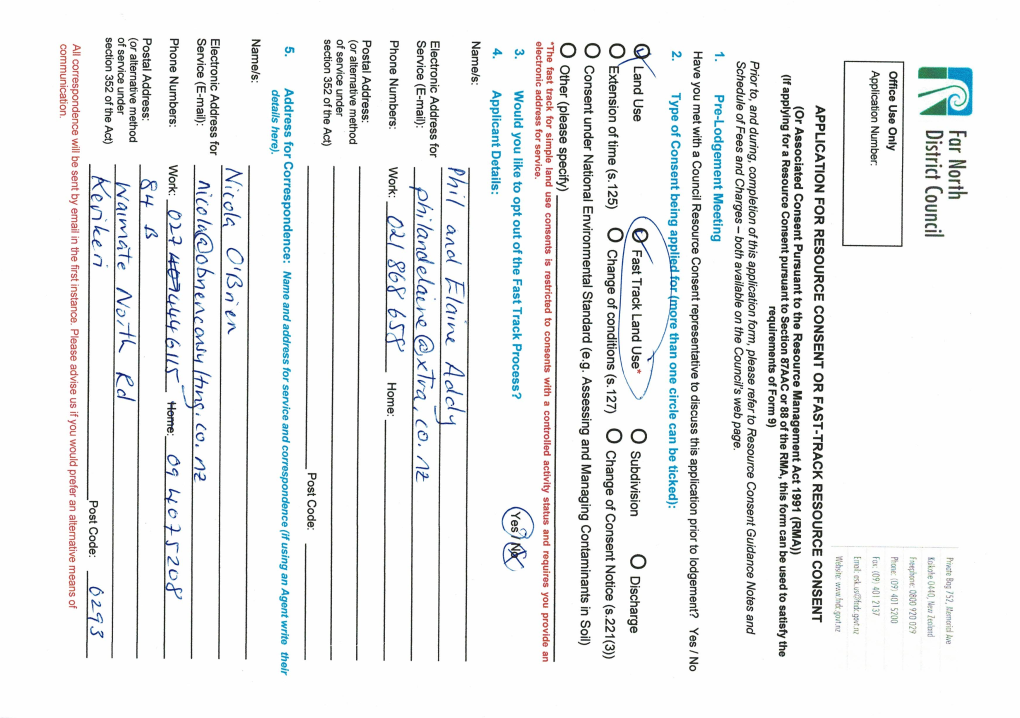 Far North
District Council
Private Bag 752, Memorial Ave
Kaikohe 0440, New Zealand
Freephone: 0800 920 029
Phone: (09) 401 5200
Fax: (09) 401 2137
Email: ask.us@fndc.govt.nz
Website: www.fndc.govt.nz
Office Use Only
Application Number:
APPLICATION FOR RESOURCE CONSENT OR FAST-TRACK RESOURCE CONSENT
(Or Associated Consent Pursuant to the Resource Management Act 1991 (RMA))
(If applying for a Resource Consent pursuant to Section 87AAC or 88 of the RMA, this form can be used to satisfy the
requirements of Form 9)
Prior to, and during, completion of this application form, please refer to Resource Consent Guidance Notes and
Schedule of Fees and Charges – both available on the Council's web page.
1. Pre-Lodgement Meeting
Have you met with a Council Resource Consent representative to discuss this application prior to lodgement? Yes / No
2. Type of Consent being applied for (more than one circle can be ticked):
Land Use Fast Track Land Use* Subdivision Discharge
Extension of time (s.125) Change of conditions (s.127) Change of Consent Notice (s.221(3))
Consent under National Environmental Standard (e.g. Assessing and Managing Contaminants in Soil)
Other (please specify)
*The fast track for simple land use consents is restricted to consents with a controlled activity status and requires you provide an
electronic address for service.
3. Would you like to opt out of the Fast Track Process? Yes / No
4. Applicant Details:
Name/s: Phil and Elaine Addy
Electronic Address for
Service (E-mail): philandelaine@xtra.co.nz
Phone Numbers: Work: 021 868 658 Home:
Postal Address:
(or alternative method
of service under
section 352 of the Act)
Post Code:
5. Address for Correspondence: Name and address for service and correspondence (if using an Agent write their
details here).
Name/s: Nicola O'Brien
Electronic Address for
Service (E-mail): nicola@obrienconsulting.co.nz
Phone Numbers: Work: 027 4446115 Home: 09 4075208
Postal Address: 84 B
(or alternative method
of service under Waimate North Rd
section 352 of the Act) Kerikeri Post Code: 0293
All correspondence will be sent by email in the first instance. Please advise us if you would prefer an alternative means of
communication.